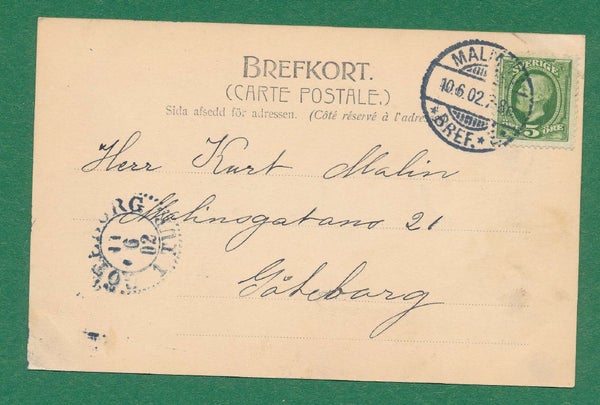 BREFKORT.
(CARTE POSTALE.)
Sida afsedd för adressen. (Côté réservé à l'adre
MALM
10.6.02.
*BREF.*
SVERIGE
5 ÖRE
Herr Kurt Malin
Malinsgatan 21
Göteborg
GÖTEBORG 1 TUR
11
6
02